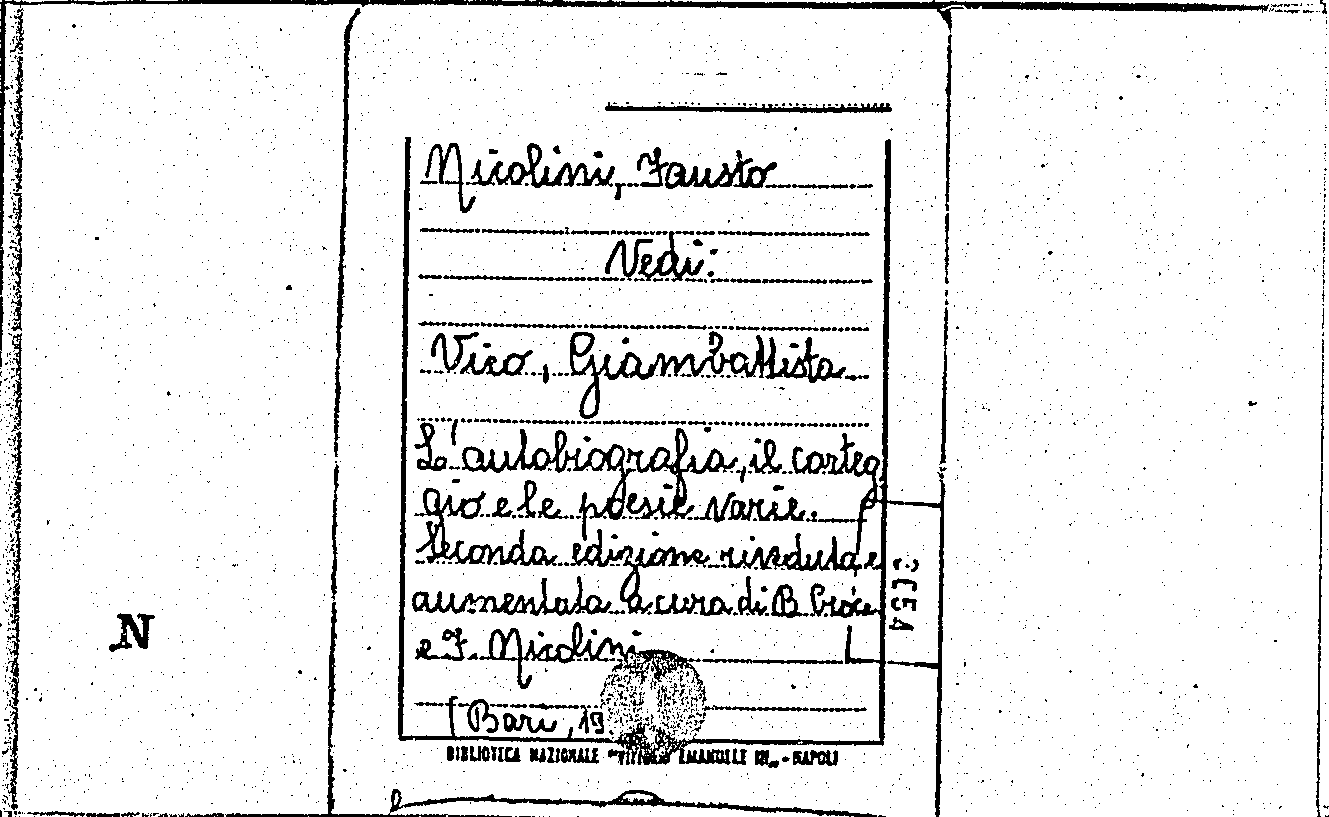 Nicolini, Fausto
Vedi:
Vico, Giambattista
L'autobiografia, il carteg
gio e le poesie varie.
Seconda edizione riveduta e
aumentata a cura di B. Croce
e F. Nicolini
(Bari, 19
N
BIBLIOTECA NAZIONALE "VITTORIO EMANUELE III" - NAPOLI